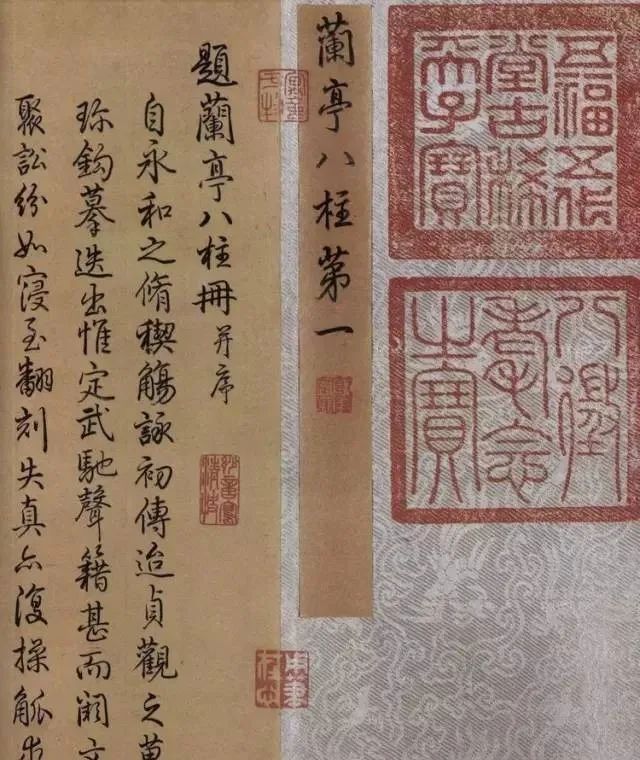 五福五代
堂古稀
天子寶
八徵
耄念
之寶
蘭亭八柱苐一
題蘭亭八柱冊并序
自永和之脩稧觴詠初傳迨貞觀之
珎鈎摹迭出惟定武馳聲籍甚而闕文
聚訟紛如寖至翻刻失真亦復操觚